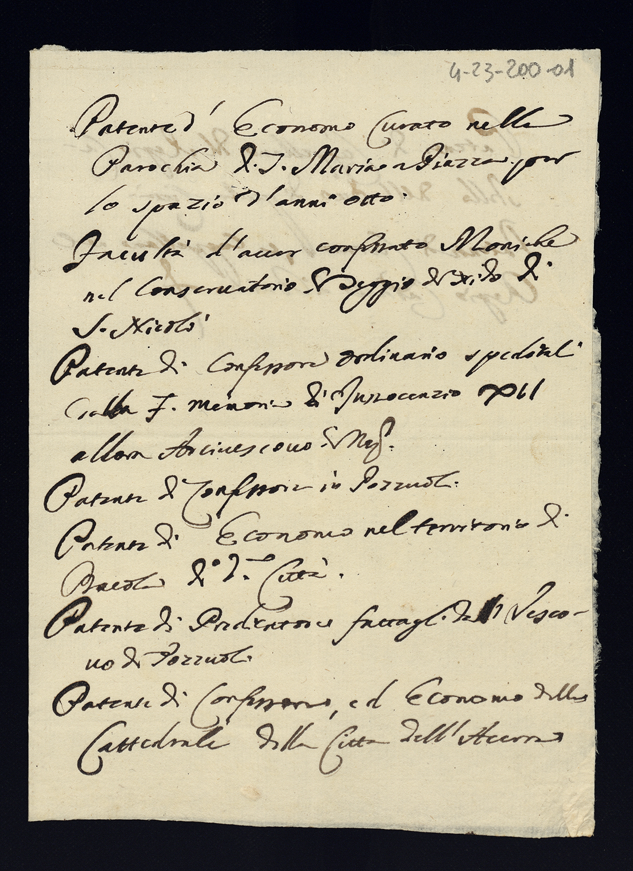 4-23-200-01
Patente d' Economo Curato nella
Parochia di S. Maria a Piazza per
lo spazio d'anni otto.
Facultà d'aver confessato Moniche
nel Conservatorio di
S. Nicolò
Patente di Confessore ordinario speditali
dalla F. memoria di Innocenzio XII
allora Arcivescovo di Nap.
Patente di Confessore in Pozzuoli.
Patente di Economo nel territorio di
Città.
Patente di Predicatore fattagli dall Vesco-
vo di Pozzuoli
Patente di Confessore, ed Economo della
Cattedrale della Città dell'Acerra